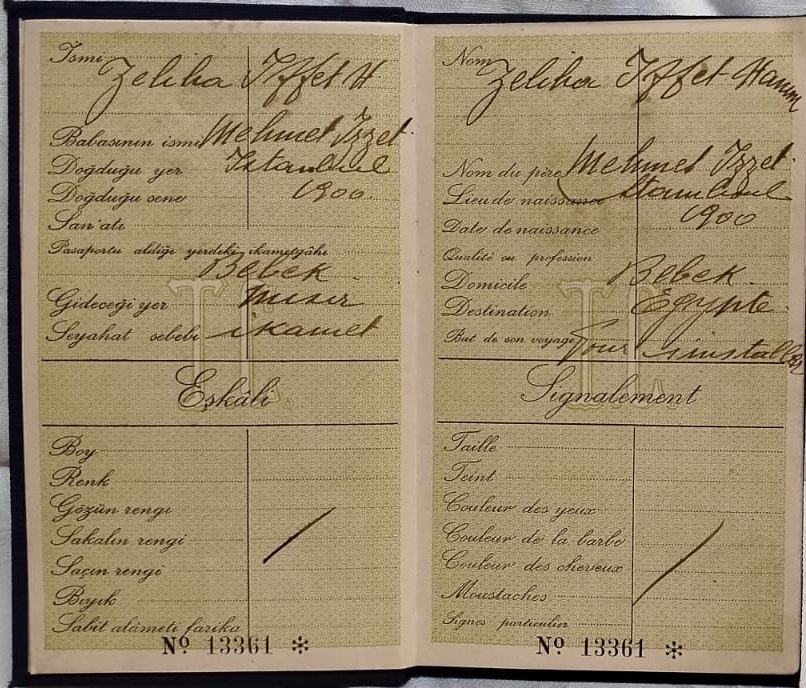 Ismi
Zeliha Iffet H
Babasının ismi Mehmet Izzet
Doğduğu yer Istanbul
Doğduğu sene 1900
San'atı
Pasaportu aldığı yerdeki ikametgâhı
Bebek
Gideceği yer Mısır
Seyahat sebebi ikamet
Eşkâli
Boy
Renk
Gözün rengi
Sakalın rengi
Saçın rengi
Bıyık
Sabit alâmeti farika
Nº 13361 *
Nom
Zeliha Iffet Hanım
Nom du père Mehmet Izzet
Lieu de naissance Stamboul
Date de naissance 1900
Qualité ou profession
Domicile Bebek
Destination Egypte
But de son voyage Pour s'installer
Signalement
Taille
Teint
Couleur des yeux
Couleur de la barbe
Couleur des cheveux
Moustaches
Signes particulier
Nº 13361 *